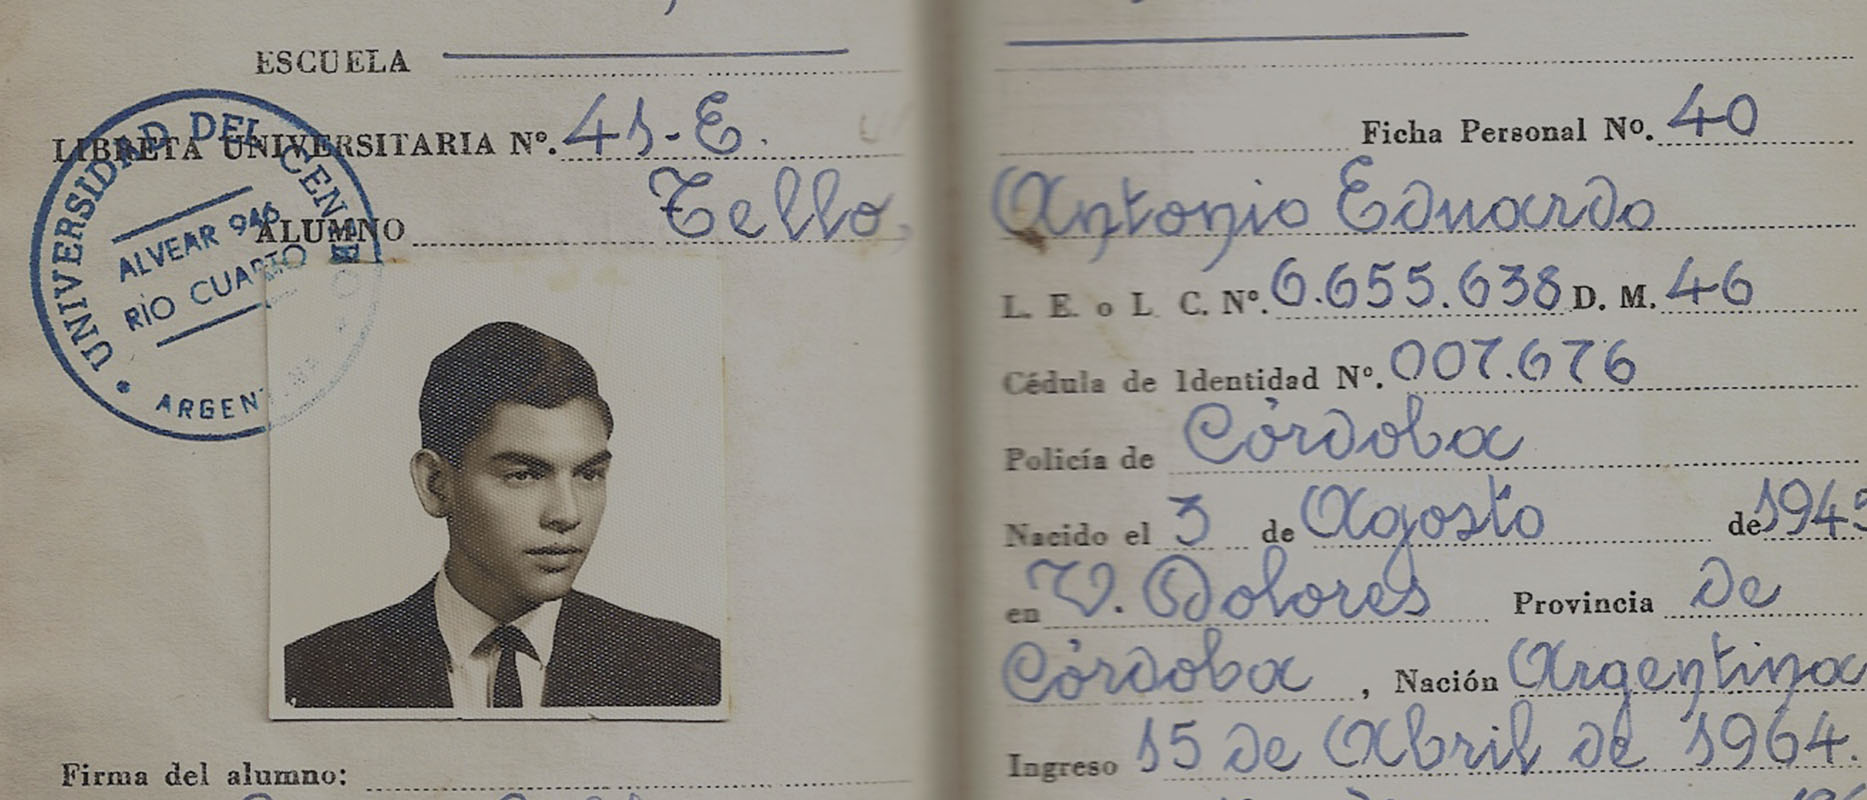 ESCUELA
LIBRETA UNIVERSITARIA Nº. 41-E.
ALUMNO Tello,
UNIVERSIDAD DEL CENTRO
ALVEAR 946
RIO CUARTO
ARGENTINA
Firma del alumno:
Ficha Personal Nº. 40
Antonio Eduardo
L. E. o L C. Nº. 6.655.638 D. M. 46
Cédula de Identidad Nº. 007.676
Policía de Córdoba
Nacido el 3 de Agosto de 1945
en V. Dolores Provincia de
Córdoba, Nación Argentina
Ingreso 15 de Abril de 1964.